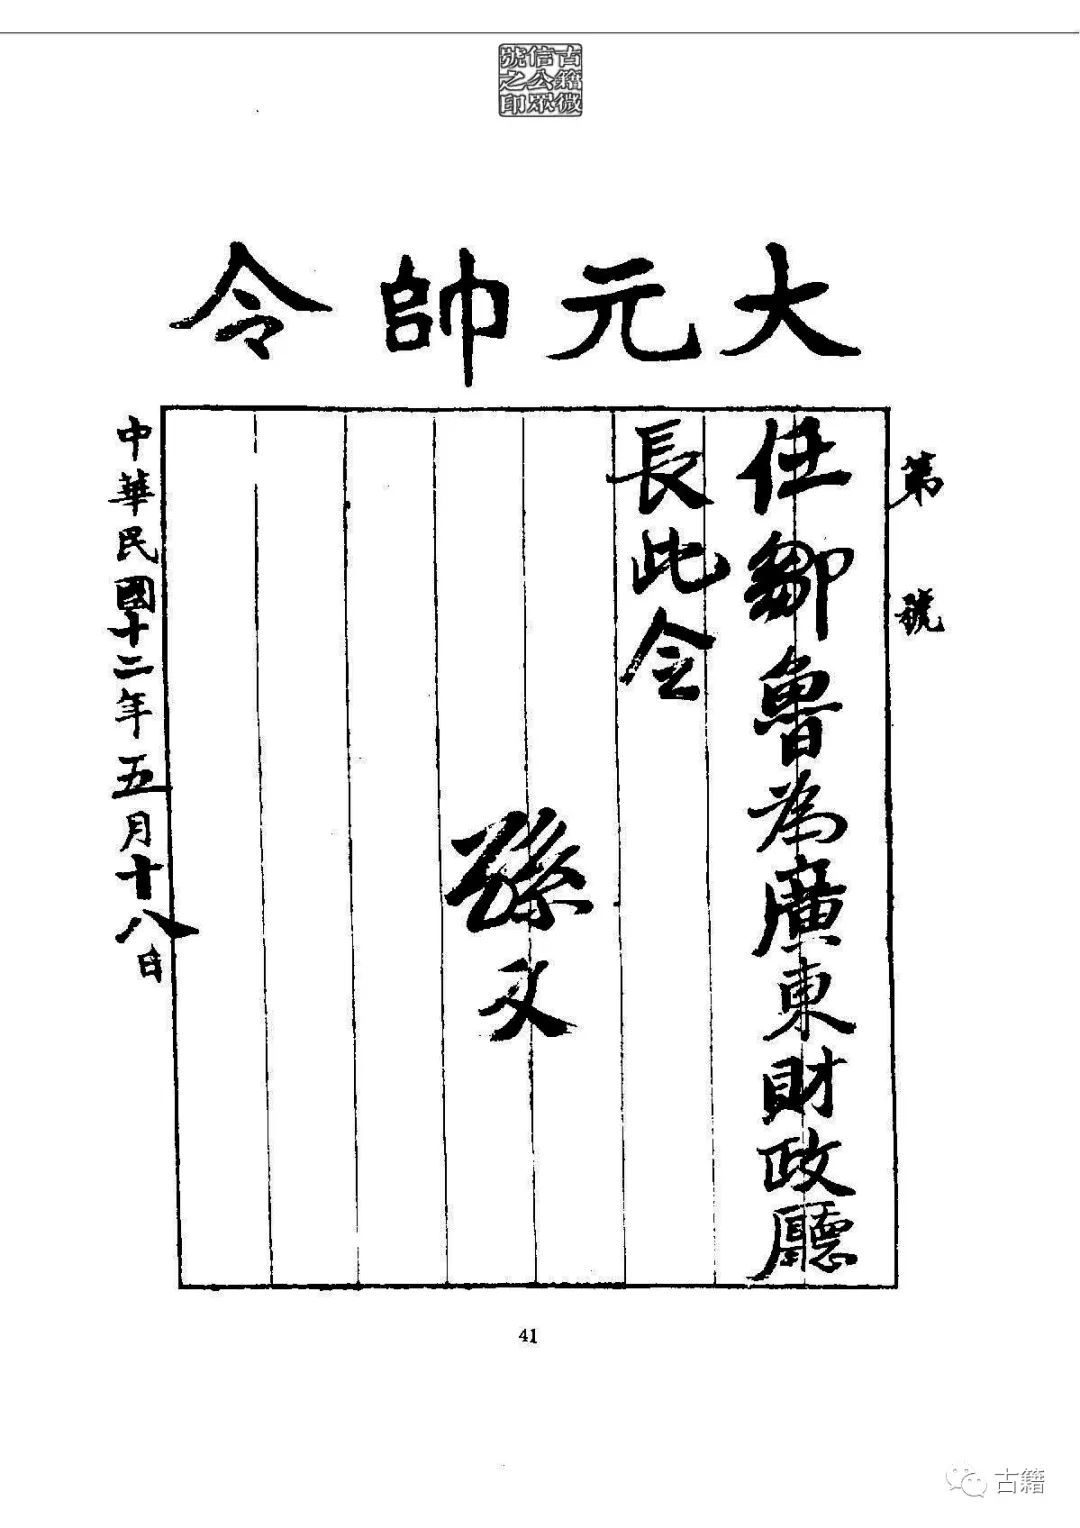 古籍微
信公眾
號之印
大元帥令
第 號
任鄒魯為廣東財政廳
長此令
孫文
中華民國十二年五月十八日
41
古籍